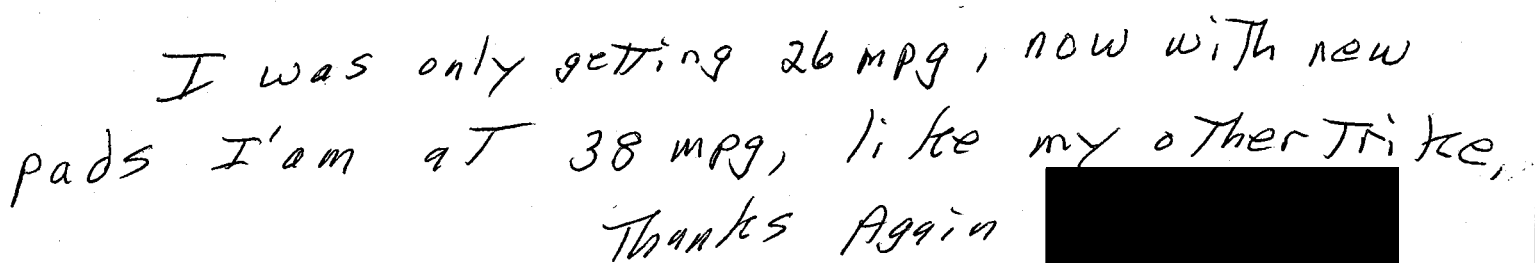 I was only getting 26 mpg, now with new
pads I'am at 38 mpg, like my other Trike,
Thanks Again